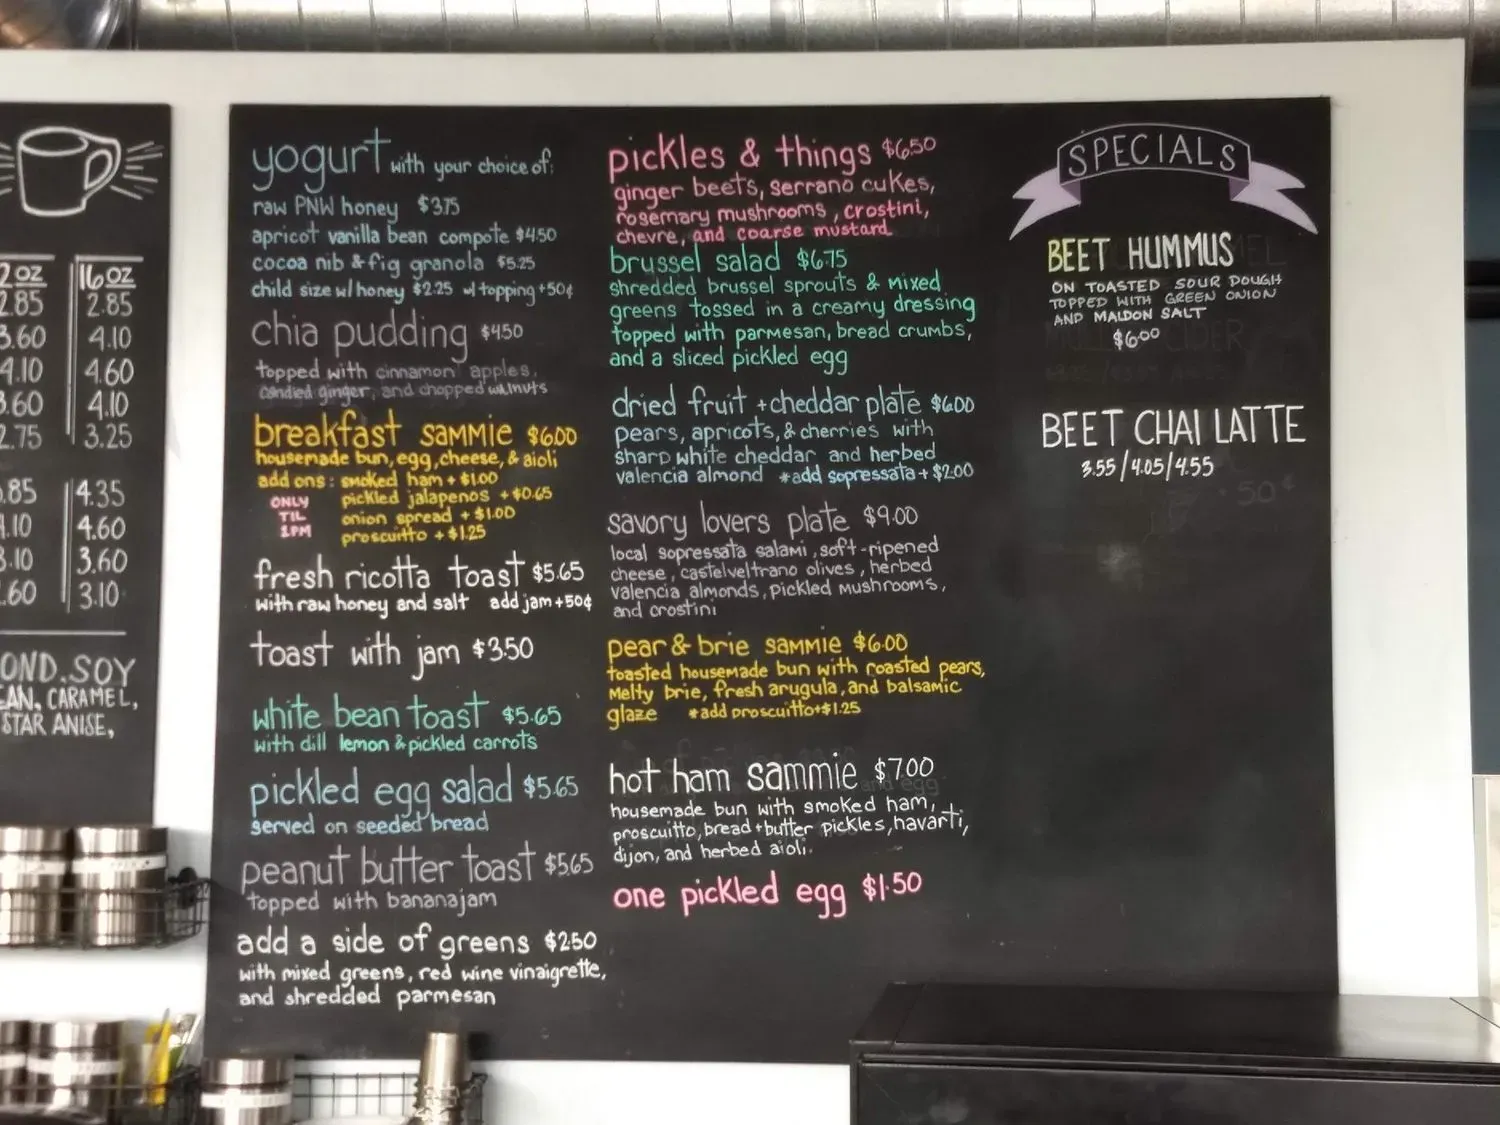 2 OZ 16 OZ
2.85 2.85
3.60 4.10
4.10 4.60
3.60 4.10
2.75 3.25
.85 4.35
4.10 4.60
3.10 3.60
.60 3.10
OND. SOY
EAN, CARAMEL,
STAR ANISE,
yogurt with your choice of:
raw PNW honey $3.75
apricot vanilla bean compote $4.50
cocoa nib & fig granola $5.25
child size w/ honey $2.25 w/ topping +50¢
chia pudding $4.50
topped with cinnamon apples,
candied ginger, and chopped walnuts
breakfast sammie $6.00
housemade bun, egg, cheese, & aioli
add ons: smoked ham + $1.00
pickled jalapenos + $0.65
onion spread + $1.00
proscuitto + $1.25
ONLY
TIL
2PM
fresh ricotta toast $5.65
with raw honey and salt add jam +50¢
toast with jam $3.50
white bean toast $5.65
with dill lemon & pickled carrots
pickled egg salad $5.65
served on seeded bread
peanut butter toast $5.65
topped with bananajam
add a side of greens $2.50
with mixed greens, red wine vinaigrette,
and shredded parmesan
pickles & things $6.50
ginger beets, serrano cukes,
rosemary mushrooms, crostini,
chevre, and coarse mustard
brussel salad $6.75
shredded brussel sprouts & mixed
greens tossed in a creamy dressing
topped with parmesan, bread crumbs,
and a sliced pickled egg
dried fruit + cheddar plate $6.00
pears, apricots, & cherries with
sharp white cheddar and herbed
valencia almond *add sopressata + $2.00
savory lovers plate $9.00
local sopressata salami, soft-ripened
cheese, castelveltrano olives, herbed
valencia almonds, pickled mushrooms,
and crostini
pear & brie sammie $6.00
toasted housemade bun with roasted pears,
melty brie, fresh arugula, and balsamic
glaze *add proscuitto+$1.25
hot ham sammie $7.00
housemade bun with smoked ham,
proscuitto, bread + butter pickles, havarti,
dijon, and herbed aioli.
one pickled egg $1.50
SPECIALS
BEET HUMMUS
ON TOASTED SOUR DOUGH
TOPPED WITH GREEN ONION
AND MALDON SALT
$6.00
BEET CHAI LATTE
3.55/4.05/4.55